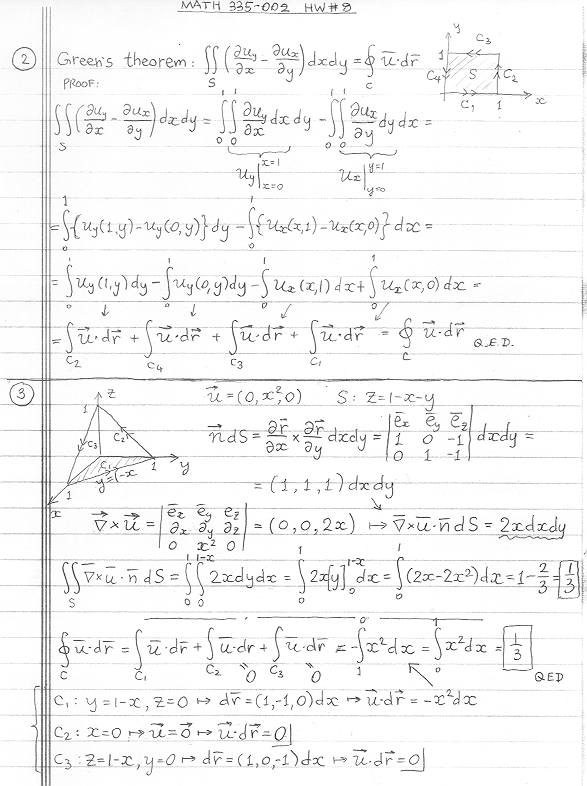 MATH 335-002 HW#9
② Green's theorem: ∬_S (∂u_y/∂x − ∂u_x/∂y) dxdy = ∮_C ū·dr̄
PROOF:
y 1 C₃ C₄ S C₂ C₁ 1 x
∬_S (∂u_y/∂x − ∂u_x/∂y) dxdy = ∫₀¹∫₀¹ ∂u_y/∂x dxdy − ∫₀¹∫₀¹ ∂u_x/∂y dydx =
u_y|_{x=0}^{x=1} u_x|_{y=0}^{y=1}
= ∫₀¹{u_y(1,y) − u_y(0,y)} dy − ∫₀¹{u_x(x,1) − u_x(x,0)} dx =
= ∫₀¹ u_y(1,y) dy − ∫₀¹ u_y(0,y) dy − ∫₀¹ u_x(x,1) dx + ∫₀¹ u_x(x,0) dx =
= ∫_{C₂} u⃗·dr̄ + ∫_{C₄} u⃗·dr⃗ + ∫_{C₃} u⃗·dr̄ + ∫_{C₁} u⃗·dr⃗ = ∮_C u⃗·dr̄ Q.E.D.
③ u⃗ = (0, x², 0) S: z = 1−x−y
z 1 C₃ C₂ C₁ y=1−x 1 y 1 x
n⃗ dS = ∂r⃗/∂x × ∂r⃗/∂y dxdy = | ē_x ē_y ē_z ; 1 0 −1 ; 0 1 −1 | dxdy =
= (1, 1, 1) dxdy
∇⃗×u⃗ = | ē_x ē_y ē_z ; ∂_x ∂_y ∂_z ; 0 x² 0 | = (0, 0, 2x) ↦ ∇̄×ū·n̄ dS = 2xdxdy
∬_S ∇̄×ū·n̄ dS = ∫₀¹∫₀^{1−x} 2xdydx = ∫₀¹ 2x[y]₀^{1−x} dx = ∫₀¹ (2x−2x²) dx = 1 − 2/3 = 1/3
∮_C ū·dr̄ = ∫_{C₁} ū·dr̄ + ∫_{C₂} ū·dr + ∫_{C₃} ū·dr̄ = −∫₁⁰ x² dx = ∫₀¹ x² dx = 1/3
"0 "0 QED
C₁: y = 1−x, z=0 ↦ dr̄ = (1,−1,0) dx ↦ ū·dr⃗ = −x² dx
C₂: x=0 ↦ u⃗=0⃗ ↦ u⃗·dr̄ = 0
C₃: z=1−x, y=0 ↦ dr̄ = (1,0,−1) dx ↦ ū·dr̄ = 0